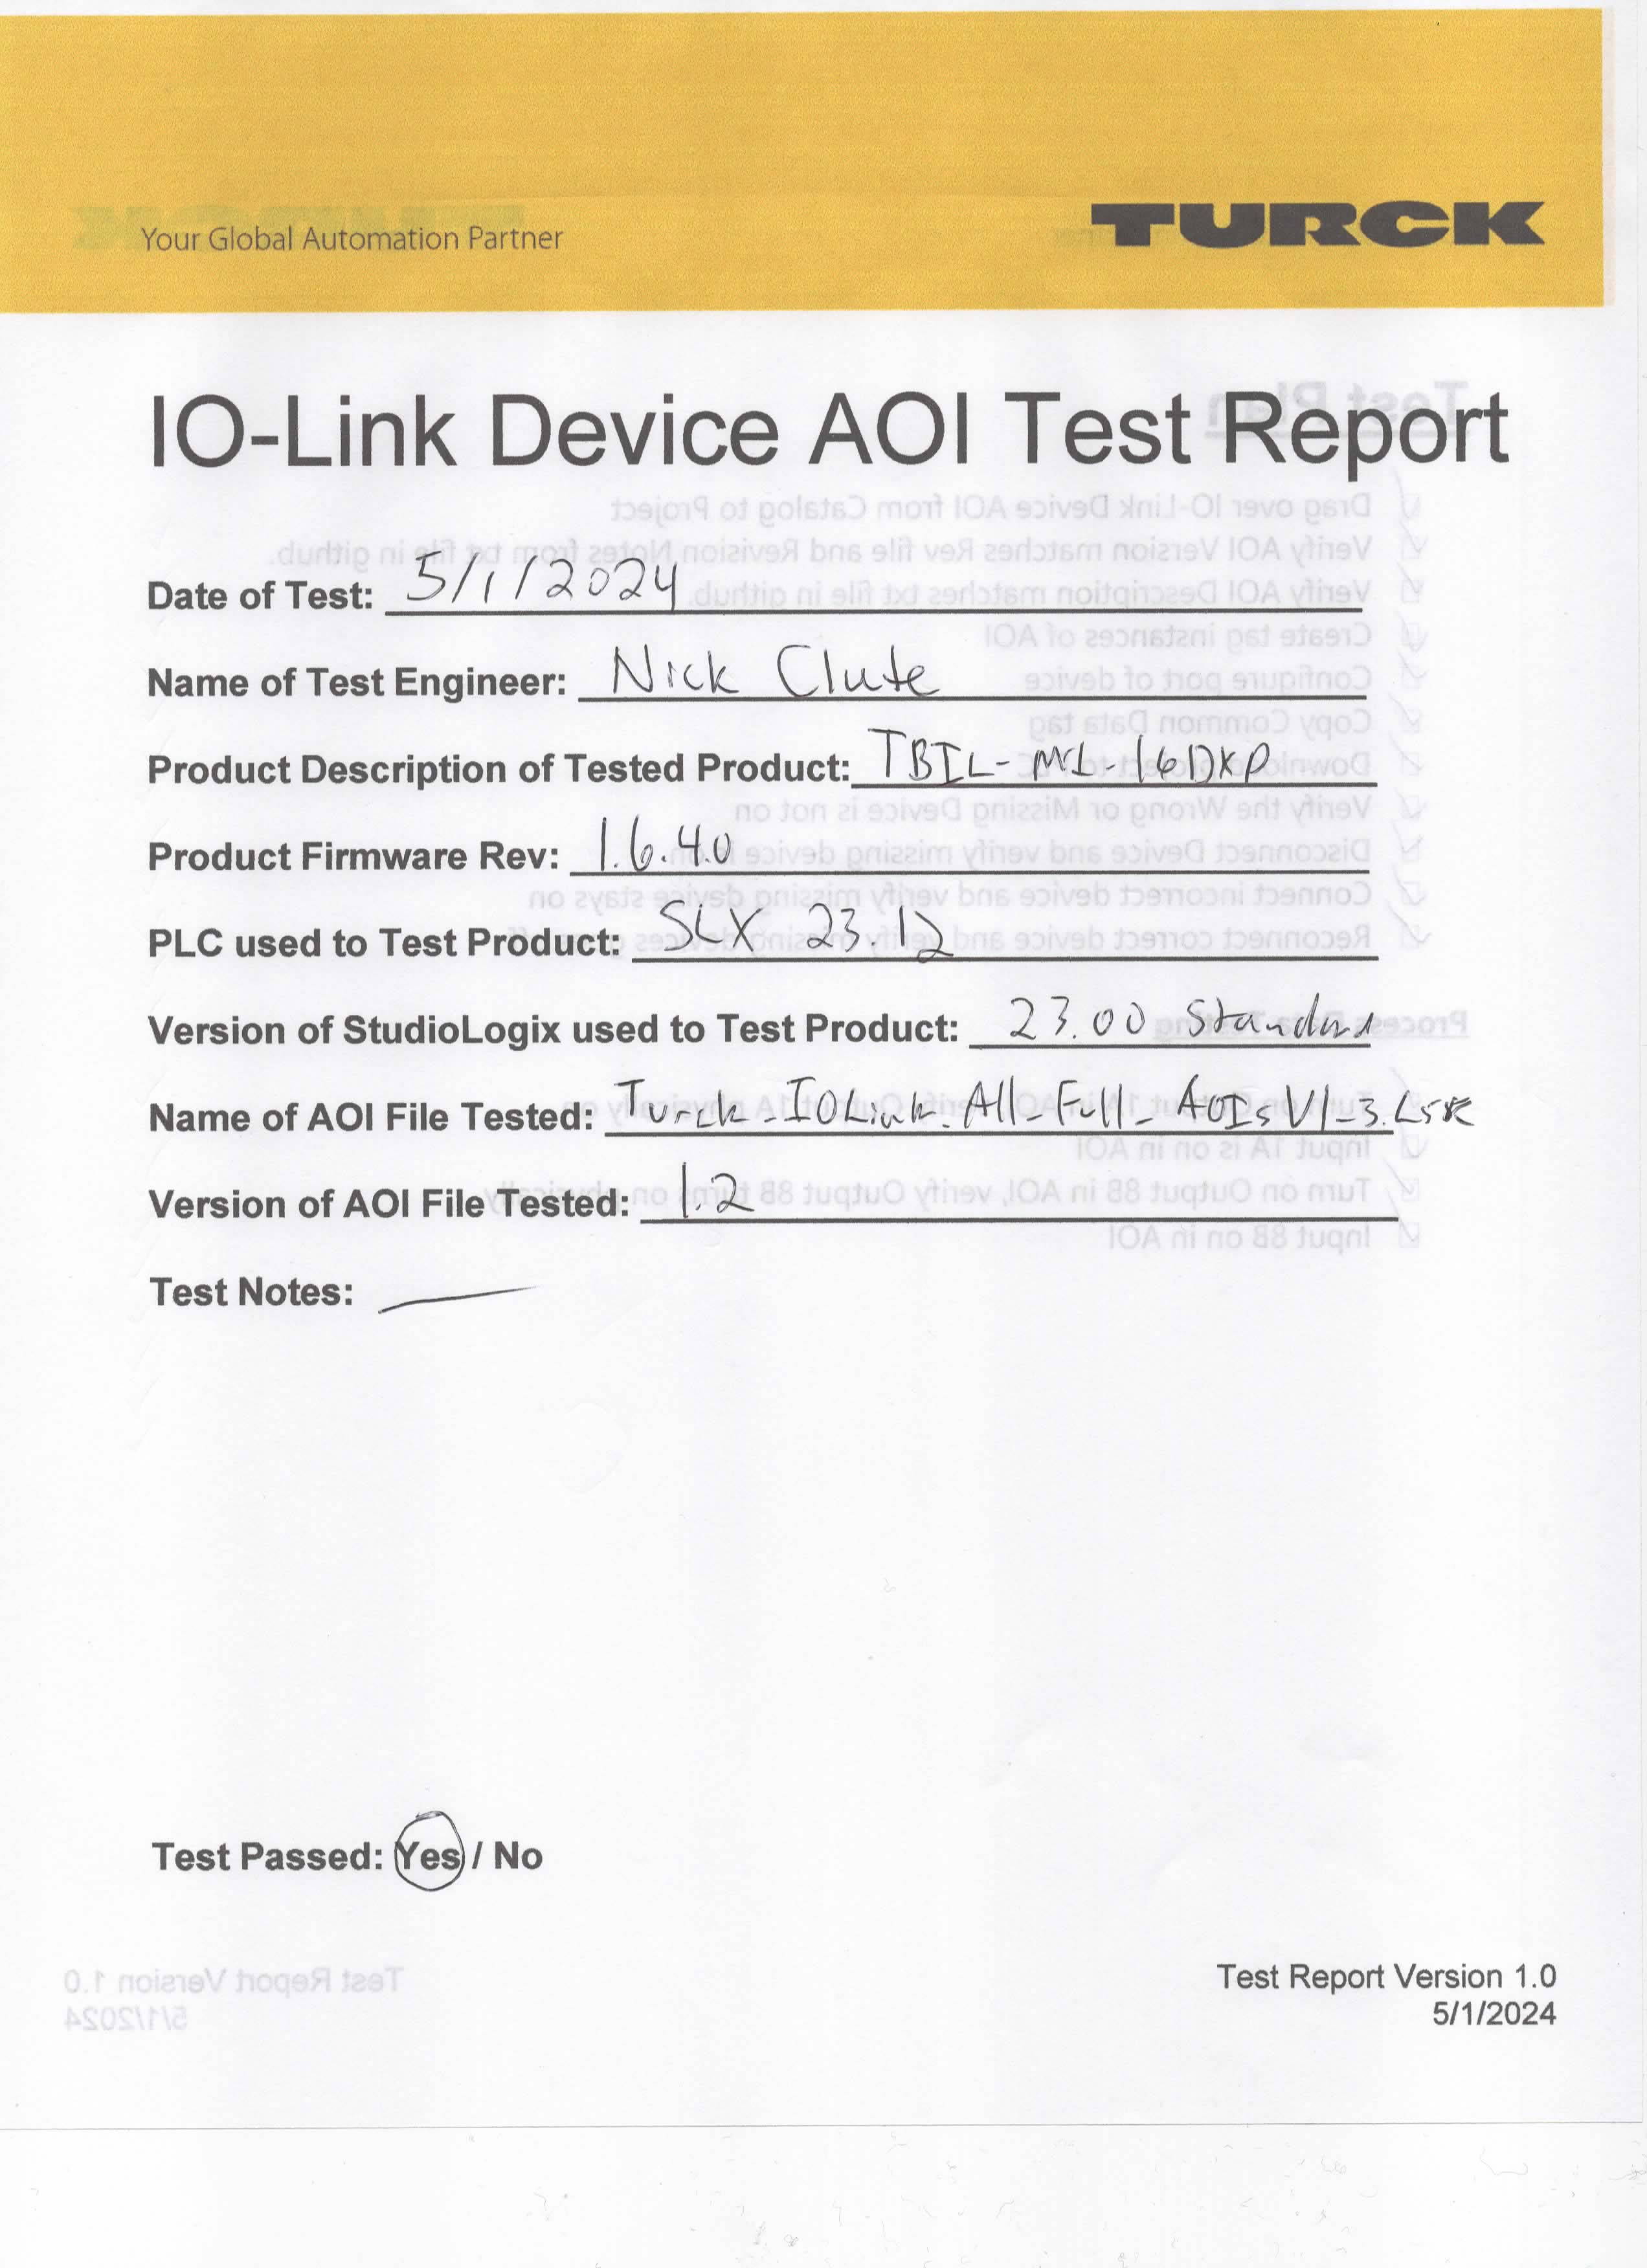 Your Global Automation Partner
TURCK
IO-Link Device AOI Test Report
Date of Test: 5/1/2024
Name of Test Engineer: Nick Clute
Product Description of Tested Product: TBIL-M1-16DXP
Product Firmware Rev: 1.6.4.0
PLC used to Test Product: SLX 23.12
Version of StudioLogix used to Test Product: 23.00 Standard
Name of AOI File Tested: Turck_IOLink_All_Full_AOIs V1_3.L5K
Version of AOI File Tested: 1.2
Test Notes:
Test Passed: Yes / No
Test Report Version 1.0
5/1/2024